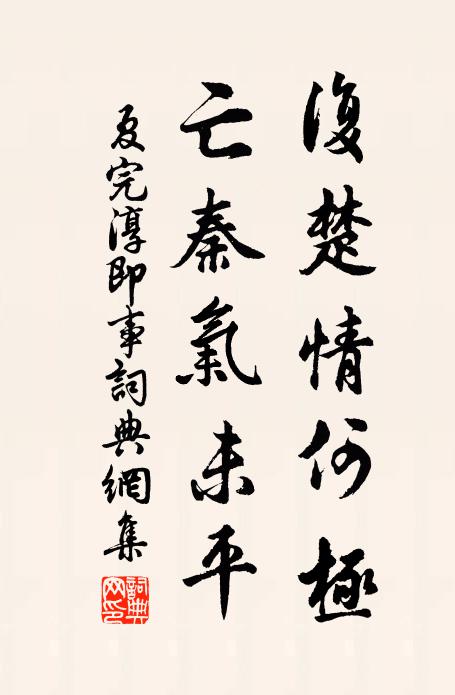 復楚情何極
亡秦氣未平
夏完淳即事詞典網集
詞典網印